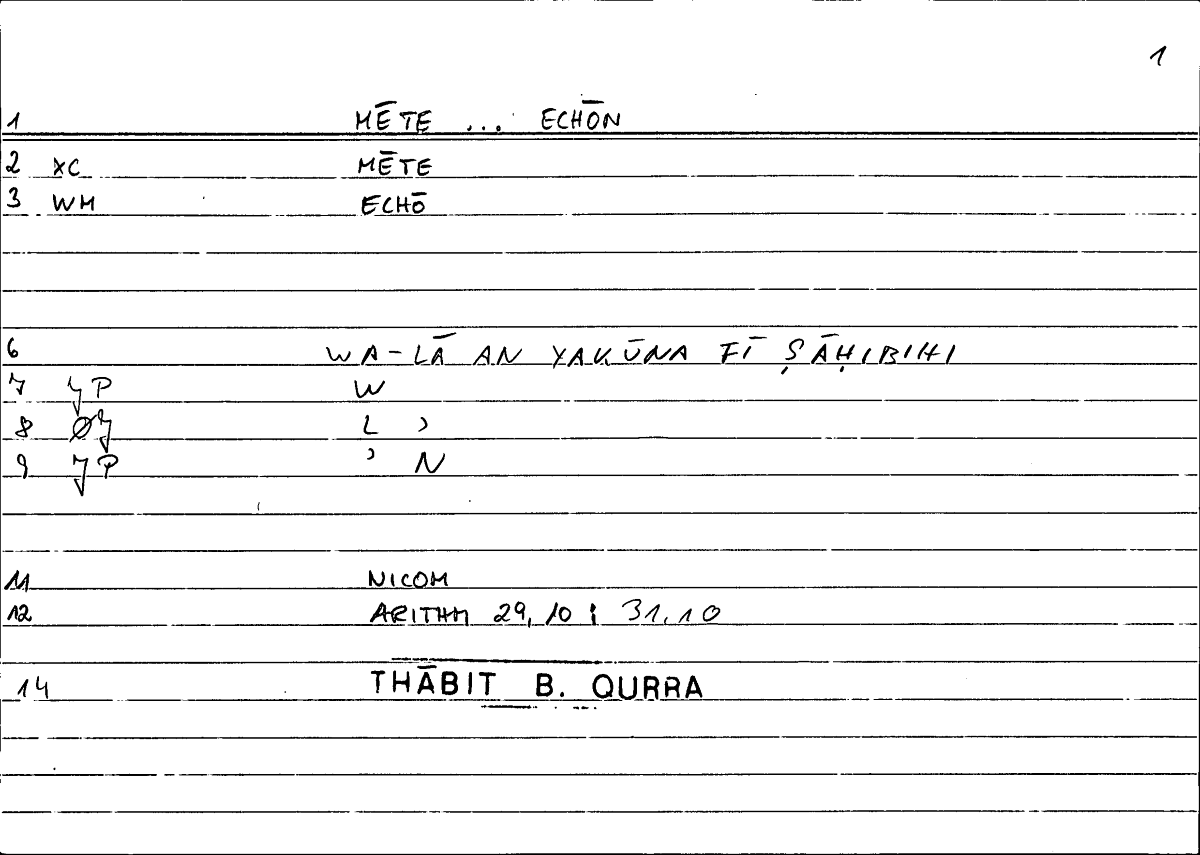 1
1 MĒTE ... ECHŌN
2 XC MĒTE
3 WM ECHŌ
6 WA-LĀ AN YAKŪNA FĪ ṢĀḤIBIHI
7 P W
8 Ø L ʾ
9 P ʾ N
11 NICOM
12 ARITHM 29,10 ; 31,10
14 THĀBIT B. QURRA